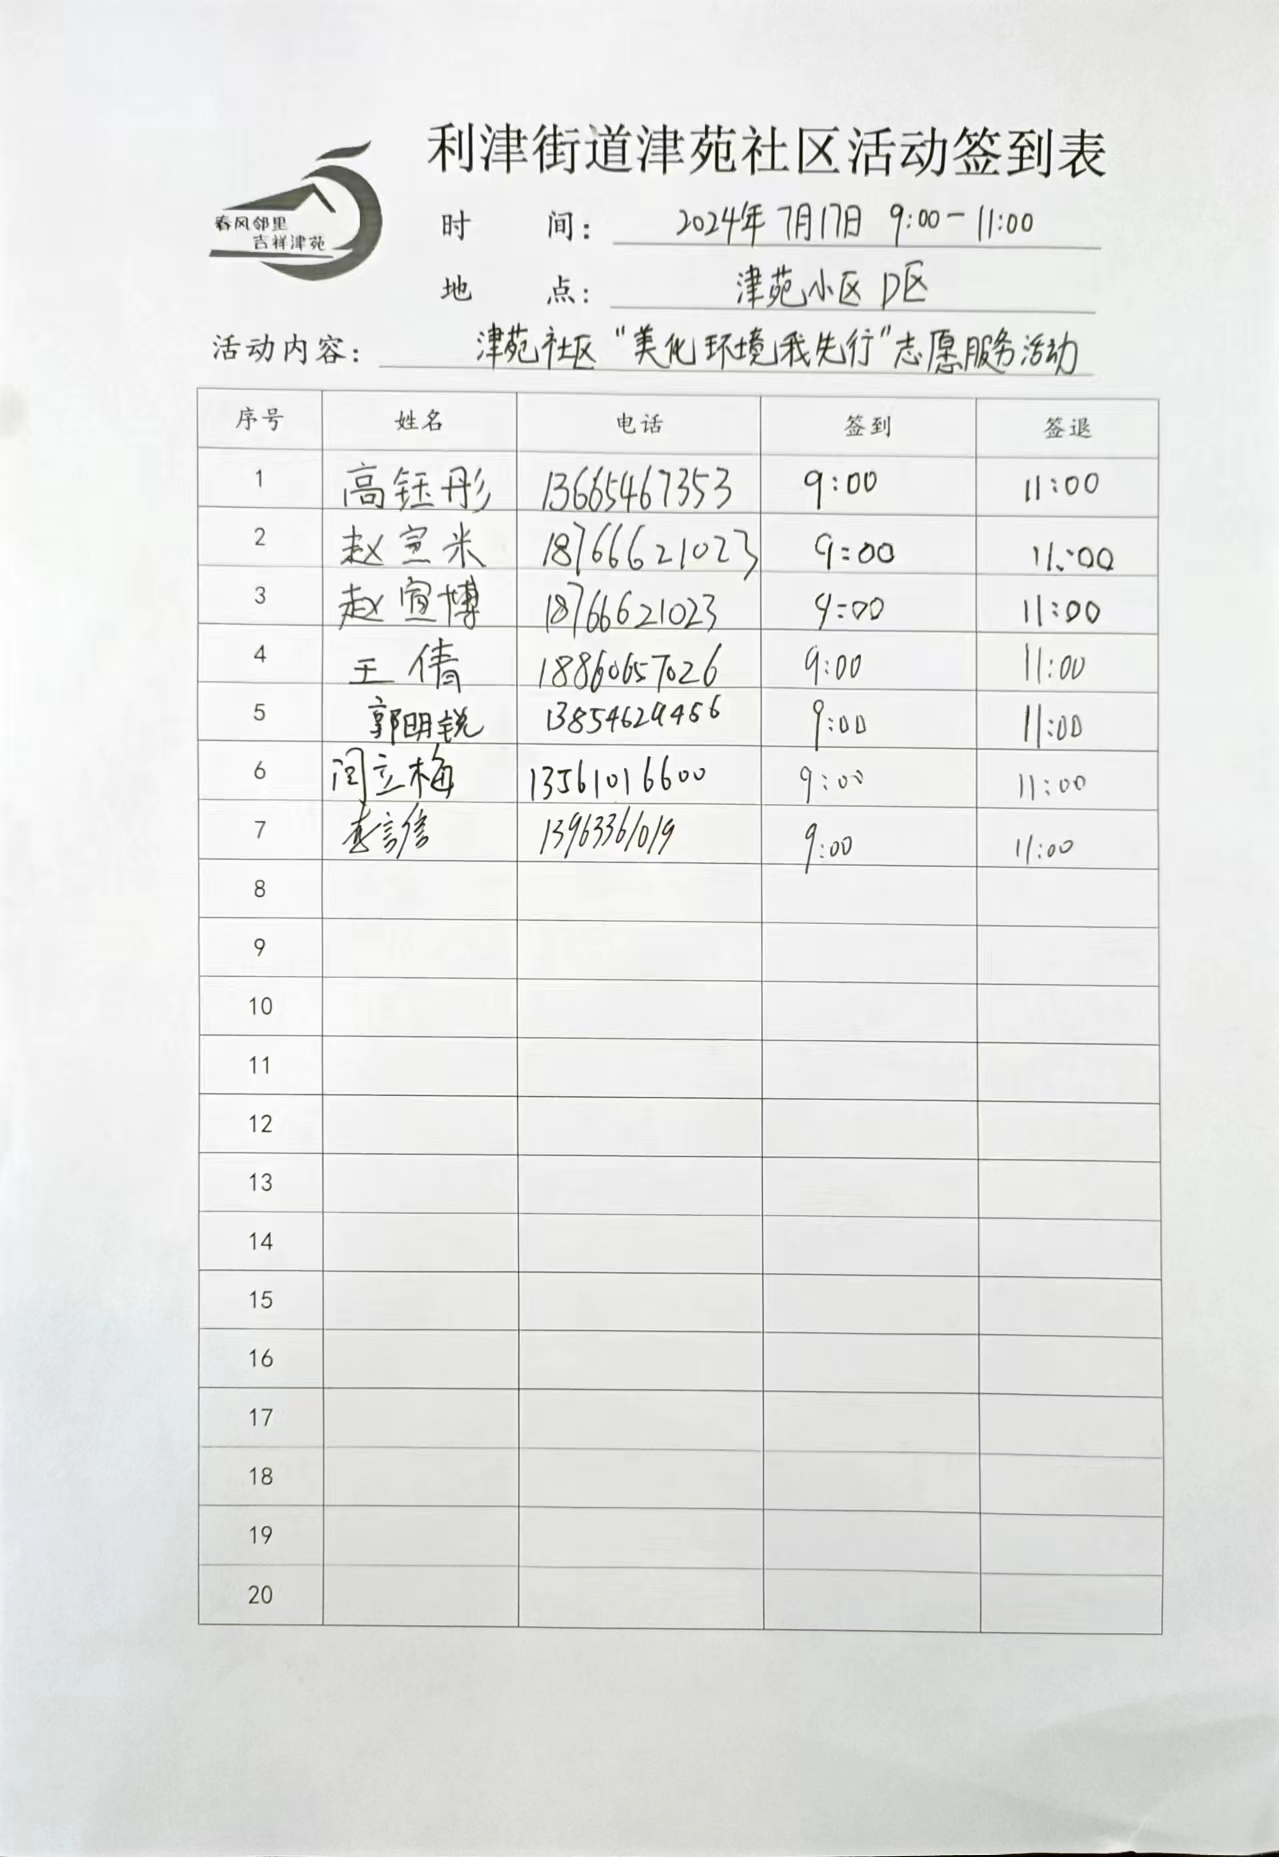 利津街道津苑社区活动签到表
春风邻里
吉祥津苑
时 间: 2024年7月17日 9:00-11:00
地 点: 津苑小区 D区
活动内容: 津苑社区"美化环境我先行"志愿服务活动
序号 姓名 电话 签到 签退
1 高钰彤 13665467353 9:00 11:00
2 赵宣米 18766621023 9:00 11:00
3 赵宣博 18766621023 9:00 11:00
4 王倩 18860657026 9:00 11:00
5 郭明锐 13854629456 9:00 11:00
6 闫立梅 13561016600 9:00 11:00
7 13963361019 9:00 11:00
8
9
10
11
12
13
14
15
16
17
18
19
20